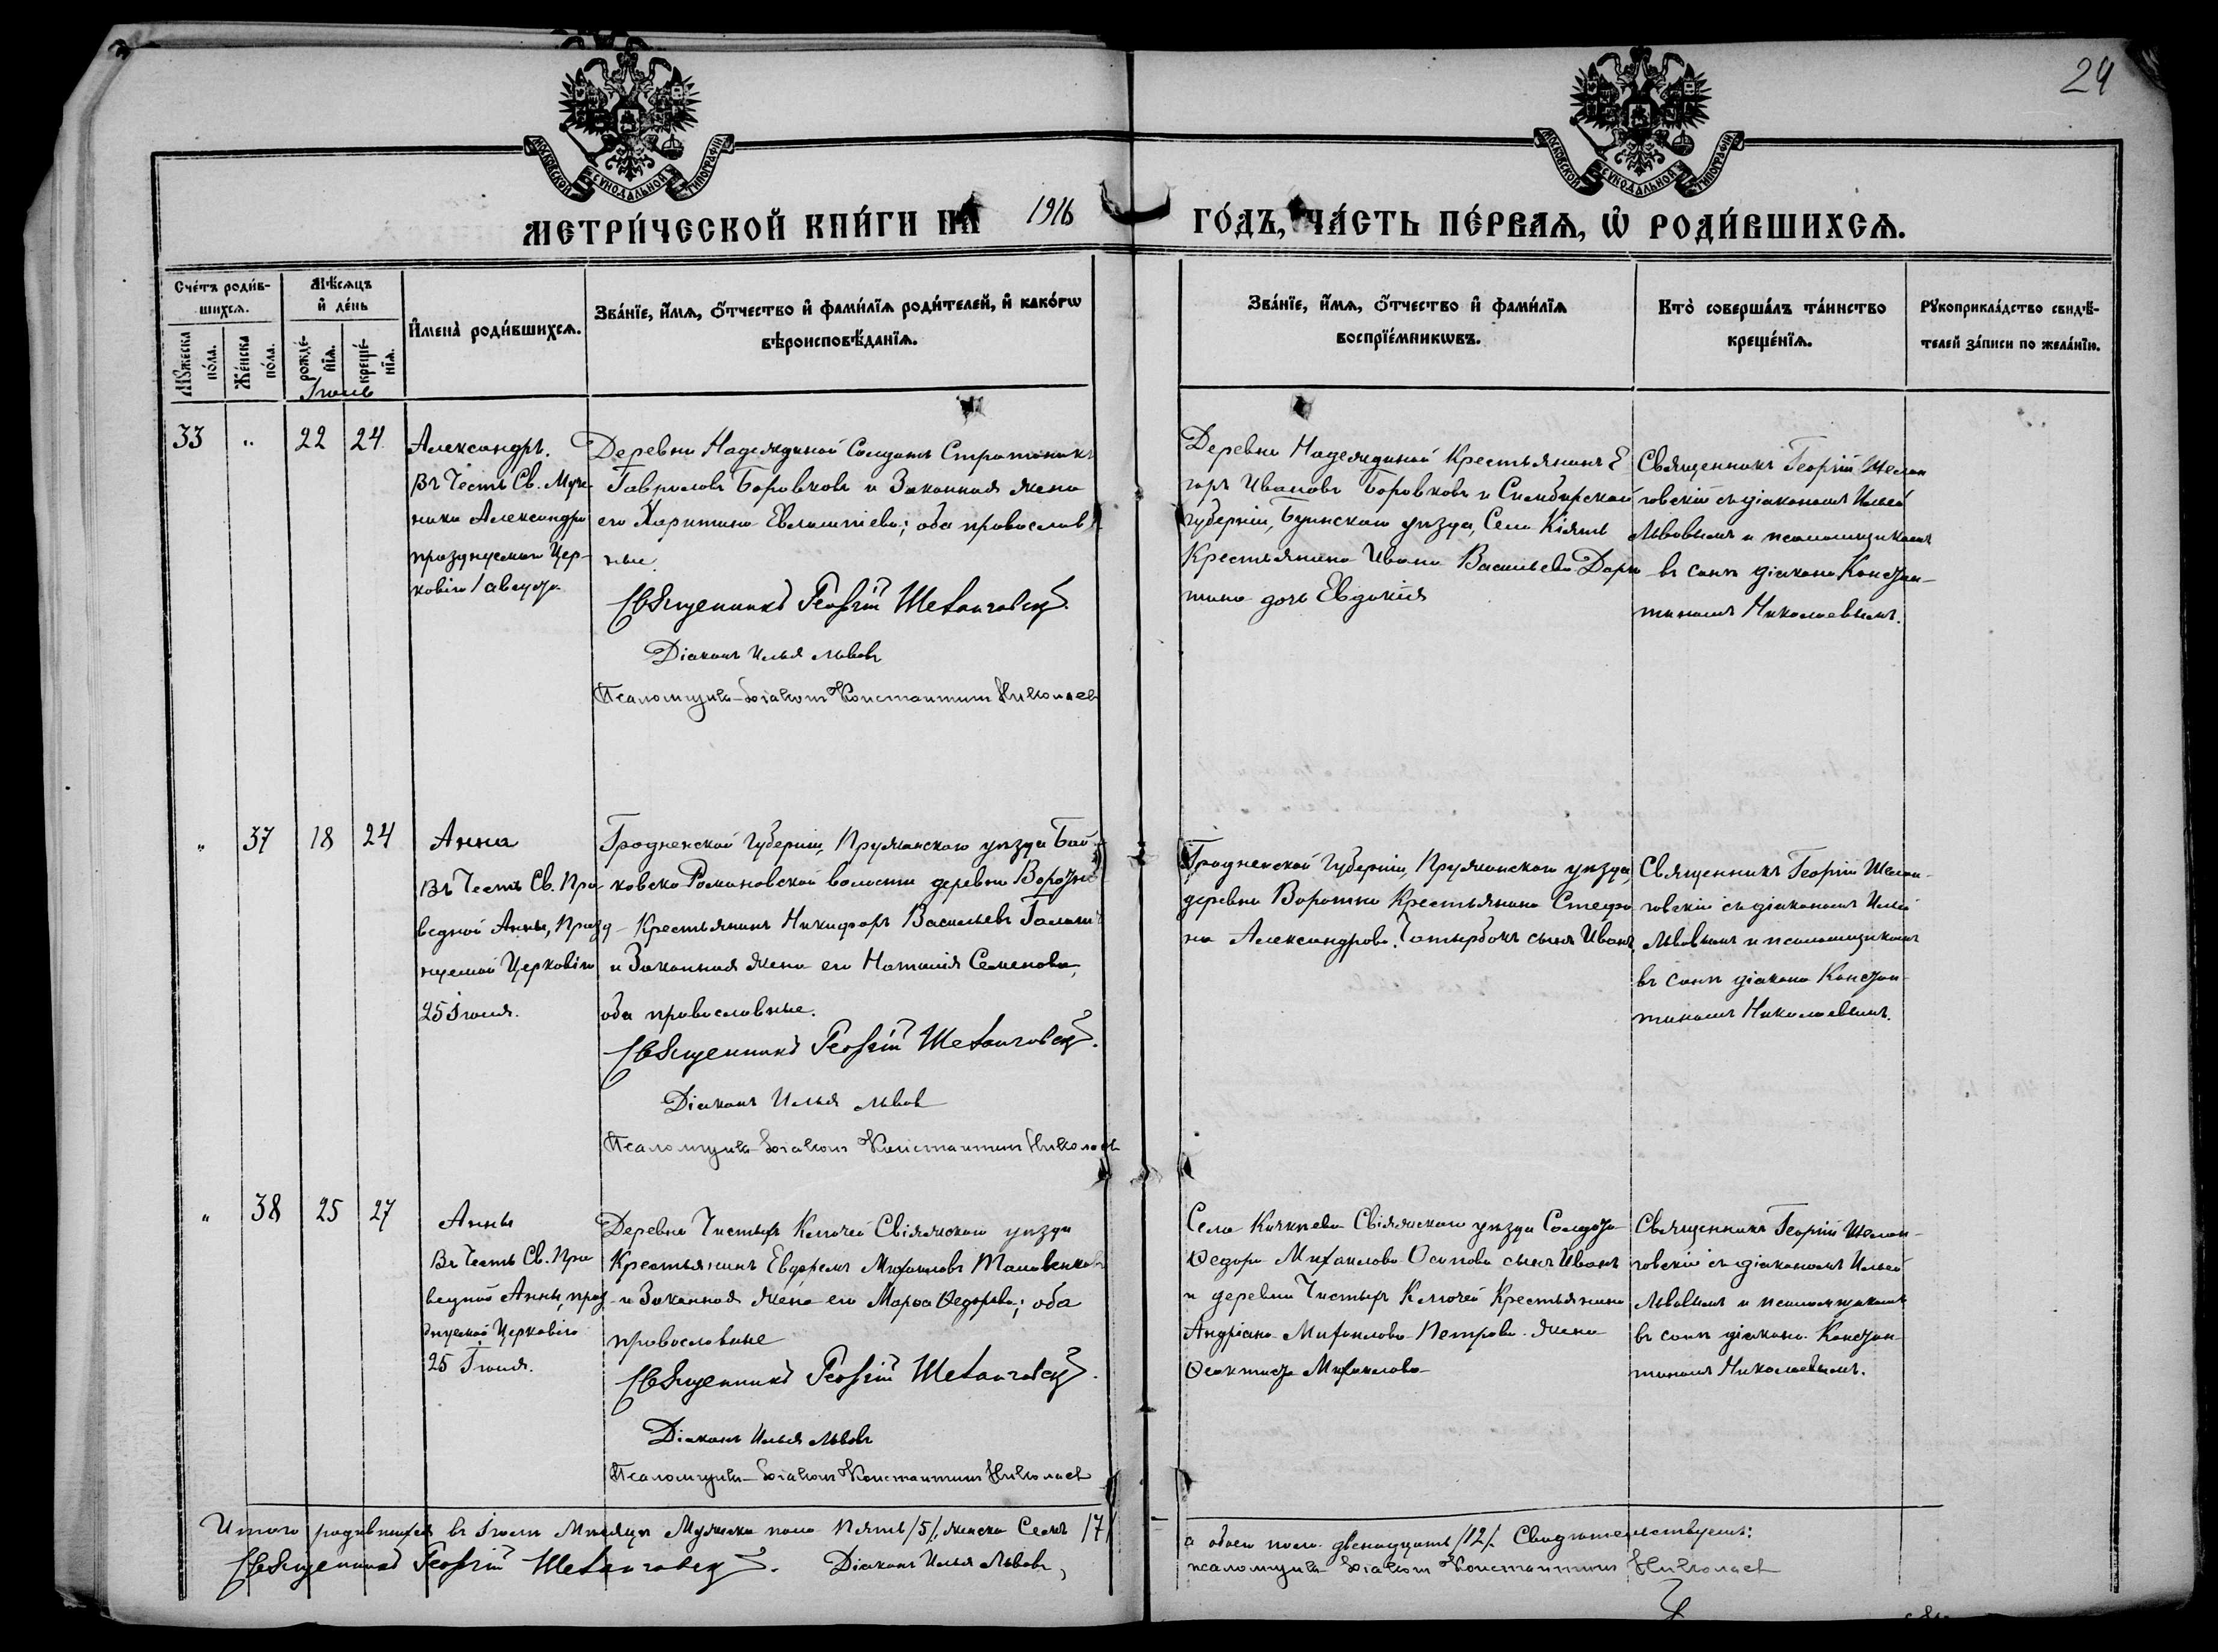 24
МОСКОВСКОЙ СѴНОДАЛЬНОЙ ТИПОГРАФІИ
МОСКОВСКОЙ СѴНОДАЛЬНОЙ ТИПОГРАФІИ
МЕТРИ́ЧЕСКОЙ КНИ́ГИ НА 1916 ГО́ДЪ, ЧА́СТЬ ПЕ́РВАѦ, Ѡ҆ РОДИ́ВШИХСѦ.
Сче́тъ роди́в-
шихсѧ.
Мꙋ́жеска по́ла.
Же́нска по́ла.
Мѣ́сѧцъ
и҆ де́нь
рожде́-
нїѧ.
креще́-
нїѧ.
И҆мена̀ роди́вшихсѧ.
Зва́нїе, и҆́мѧ, ѻ҆́тчество и҆ фами́лїѧ роди́телей, и҆ како́гѡ
вѣроисповѣ́данїѧ.
Зва́нїе, и҆́мѧ, ѻ҆́тчество и҆ фами́лїѧ
воспрїе́мникѡвъ.
Кто̀ соверша́лъ та́инство
креще́нїѧ.
Рꙋкоприкла́дство свидѣ́-
телей за́писи по жела́нїю.
Іюль
33 " 22 24
Александръ.
Въ Честь Св. Муче-
ника Александра
празднуемаго Цер-
ковію 1 августа
Деревни Надеждиной Солдатъ Стратоникъ
Гавриловъ Боровковъ и Законная жена
его Харитина Евлампіева; оба православ
ные.
Священникъ Георгій Шеланговскій.
Діаконъ Илья Львовъ
Псаломщикъ-діаконъ Константинъ Николаевъ
Деревни Надеждиной Крестьянинъ Е
горъ Ивановъ Боровковъ и Симбирской
губерніи, Буинскаго уѣзда, Села Кіять
Крестьянина Ивана Васильева
дочь Евдокія
Священникъ Георгій Шелан
говскій съ діакономъ Ильей
Львовымъ и псаломщикомъ
въ санѣ діакона Констан-
тиномъ Николаевымъ.
" 37 18 24
Анна
Въ Честь Св. Пра-
ведной Анны, Празд
нуемой Церковію
25 Іюля.
Гродненской Губерніи, Пружанскаго уѣзда Бай-
ковско Романовской волости деревни
Крестьянинъ Никифоръ Васильевъ
и Законная жена его Наталія Семенова,
оба православные.
Священникъ Георгій Шеланговскій.
Діаконъ Илья Львов
Псаломщикъ-діаконъ Константинъ Николаевъ
Гродненской Губерніи, Пружанскаго уѣзда,
деревни Воротно Крестьянина Стефа
на Александрова. Чатырбокъ сынъ Иванъ.
Священникъ Георгій Шелан-
говскій съ діакономъ Ильей
Львовымъ и псаломщикомъ
въ санѣ діакона Констан-
тиномъ Николаевымъ.
" 38 25 27
Анны
Въ Честь Св. Пра
ведной Анны, праз
днуемой Церковію
25 Іюля.
Деревни Чистыхъ Ключей Свіяжскаго уѣзда
Крестьянинъ Евдоремъ Михаиловъ
и Законная жена его Марѳа Ѳедорова; оба
православные
Священникъ Георгій Шеланговскій.
Діаконъ Илья Львовъ
Псаломщикъ-діаконъ Константинъ Николаевъ
Села Кичкѣева Свіяжскаго уѣзда Солдата
Ѳедора Михаилова Осипова сынъ Иванъ
и деревни Чистыхъ Ключей Крестьянина
Андріана Михаилова Петрова жена
Ѳеоктиста Михаилова
Священникъ Георгій Шелан-
говскій съ діакономъ Ильей
Львовымъ и псаломщикомъ
въ санѣ діакона Констан-
тиномъ Николаевымъ.
Итого родившихся въ Іюлѣ Мѣсяцѣ Мужска пола Пять /5/, женска Семь /7/
а обоего пола двенадцать /12/. Свидѣтельствуемъ:
Священникъ Георгій Шеланговскій. Діаконъ Илья Львовъ,
псаломщикъ діаконъ Константинъ Николаевъ